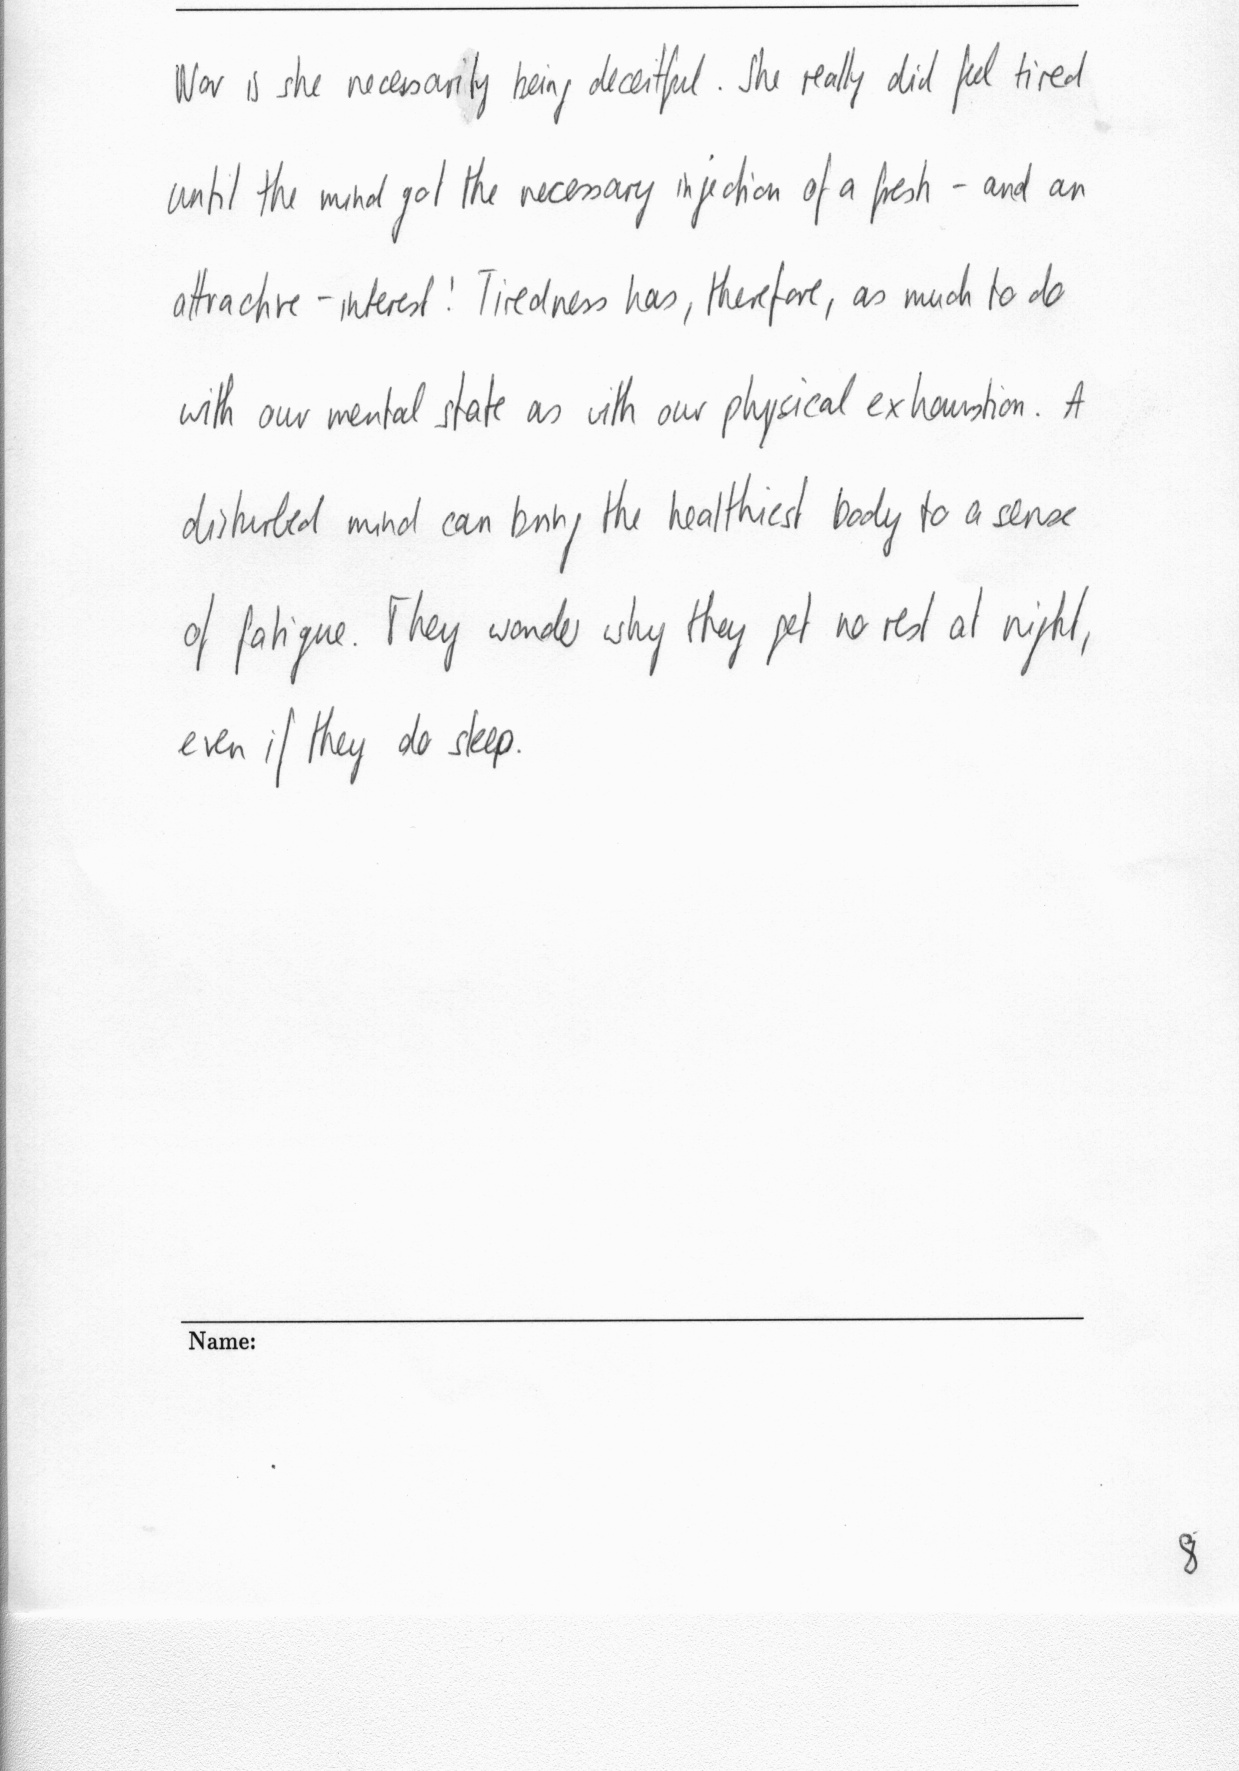 Nor is she necessarily being deceitful. She really did feel tired
until the mind got the necessary injection of a fresh - and an
attractive - interest! Tiredness has, therefore, as much to do
with our mental state as with our physical exhaustion. A
disturbed mind can bring the healthiest body to a sense
of fatigue. They wonder why they get no rest at night,
even if they do sleep.
Name:
8